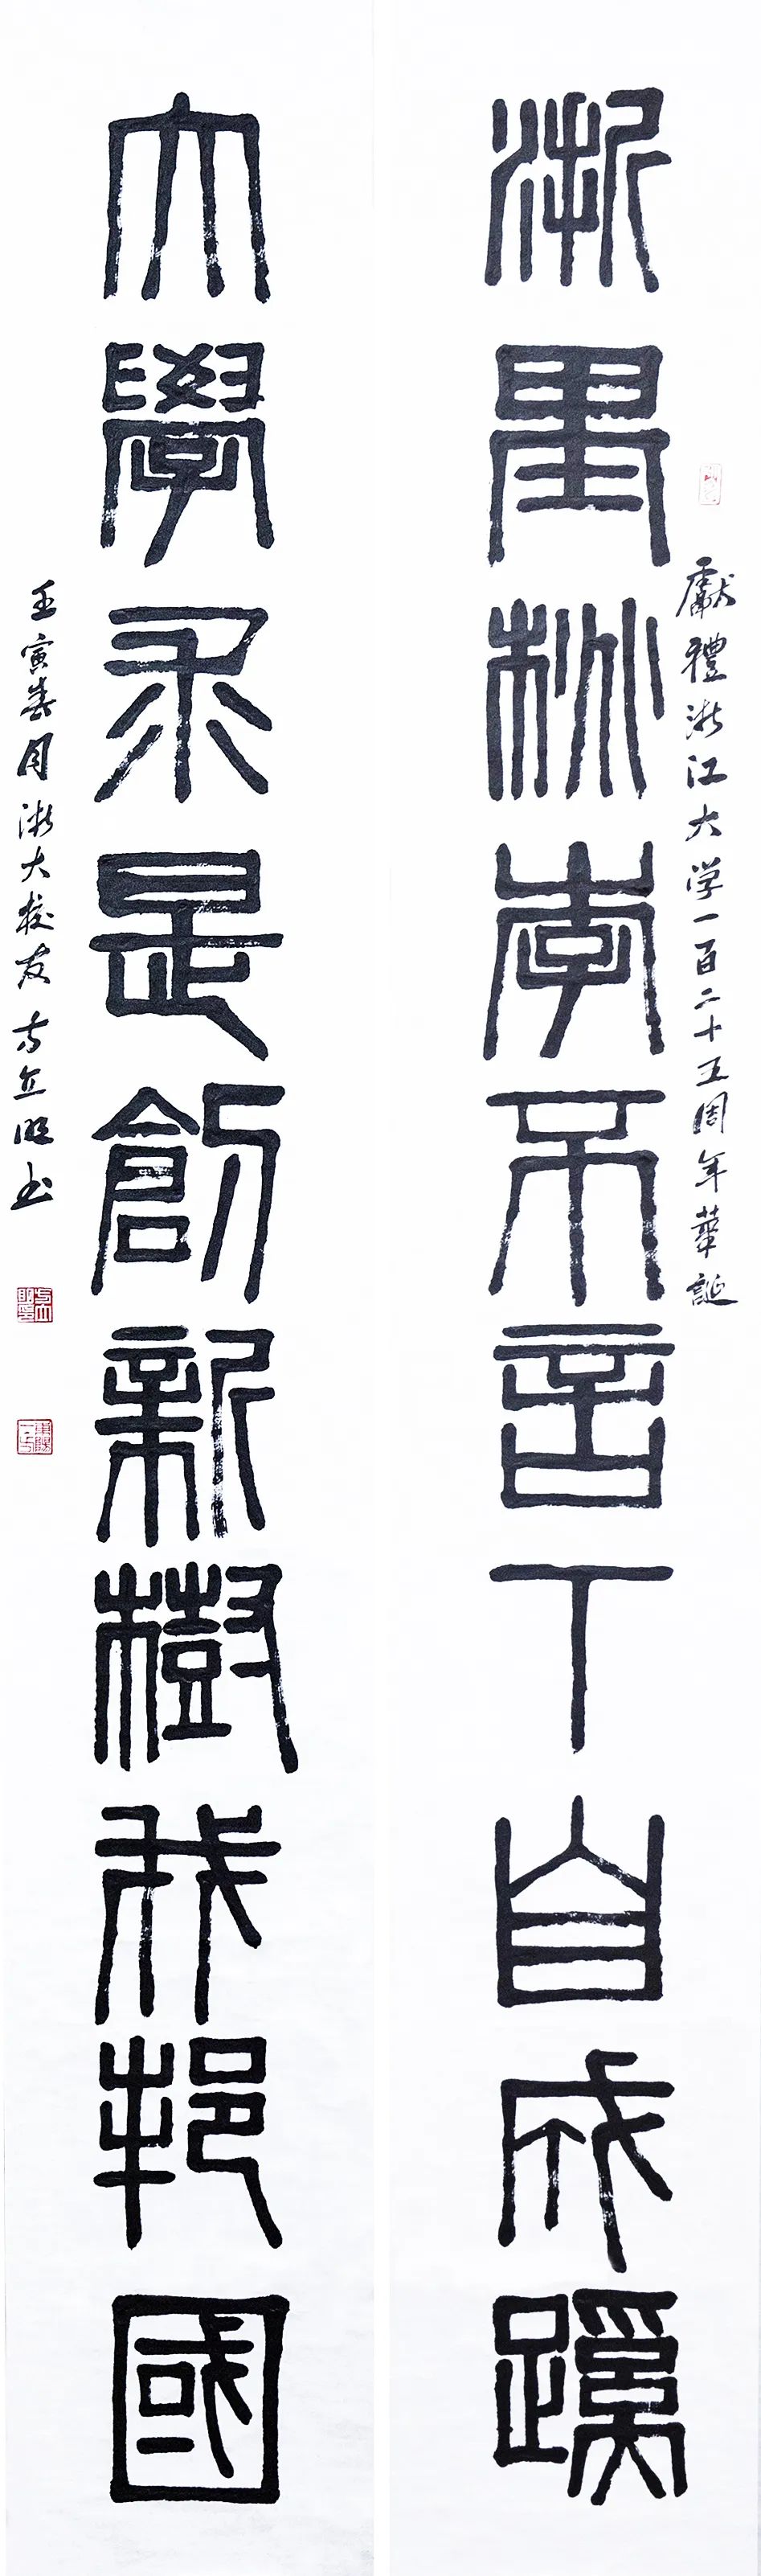 獻禮浙江大学一百二十五周年華誕
浙里桃李不言下自成蹊
大學求是創新樹我邦國
壬寅春月浙大校友方立明书